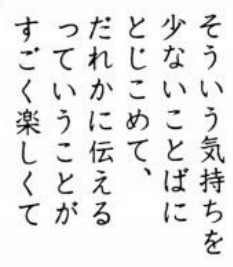 そういう気持ちを
少ないことばに
とじこめて、
だれかに伝える
っていうことが
すごく楽しくて